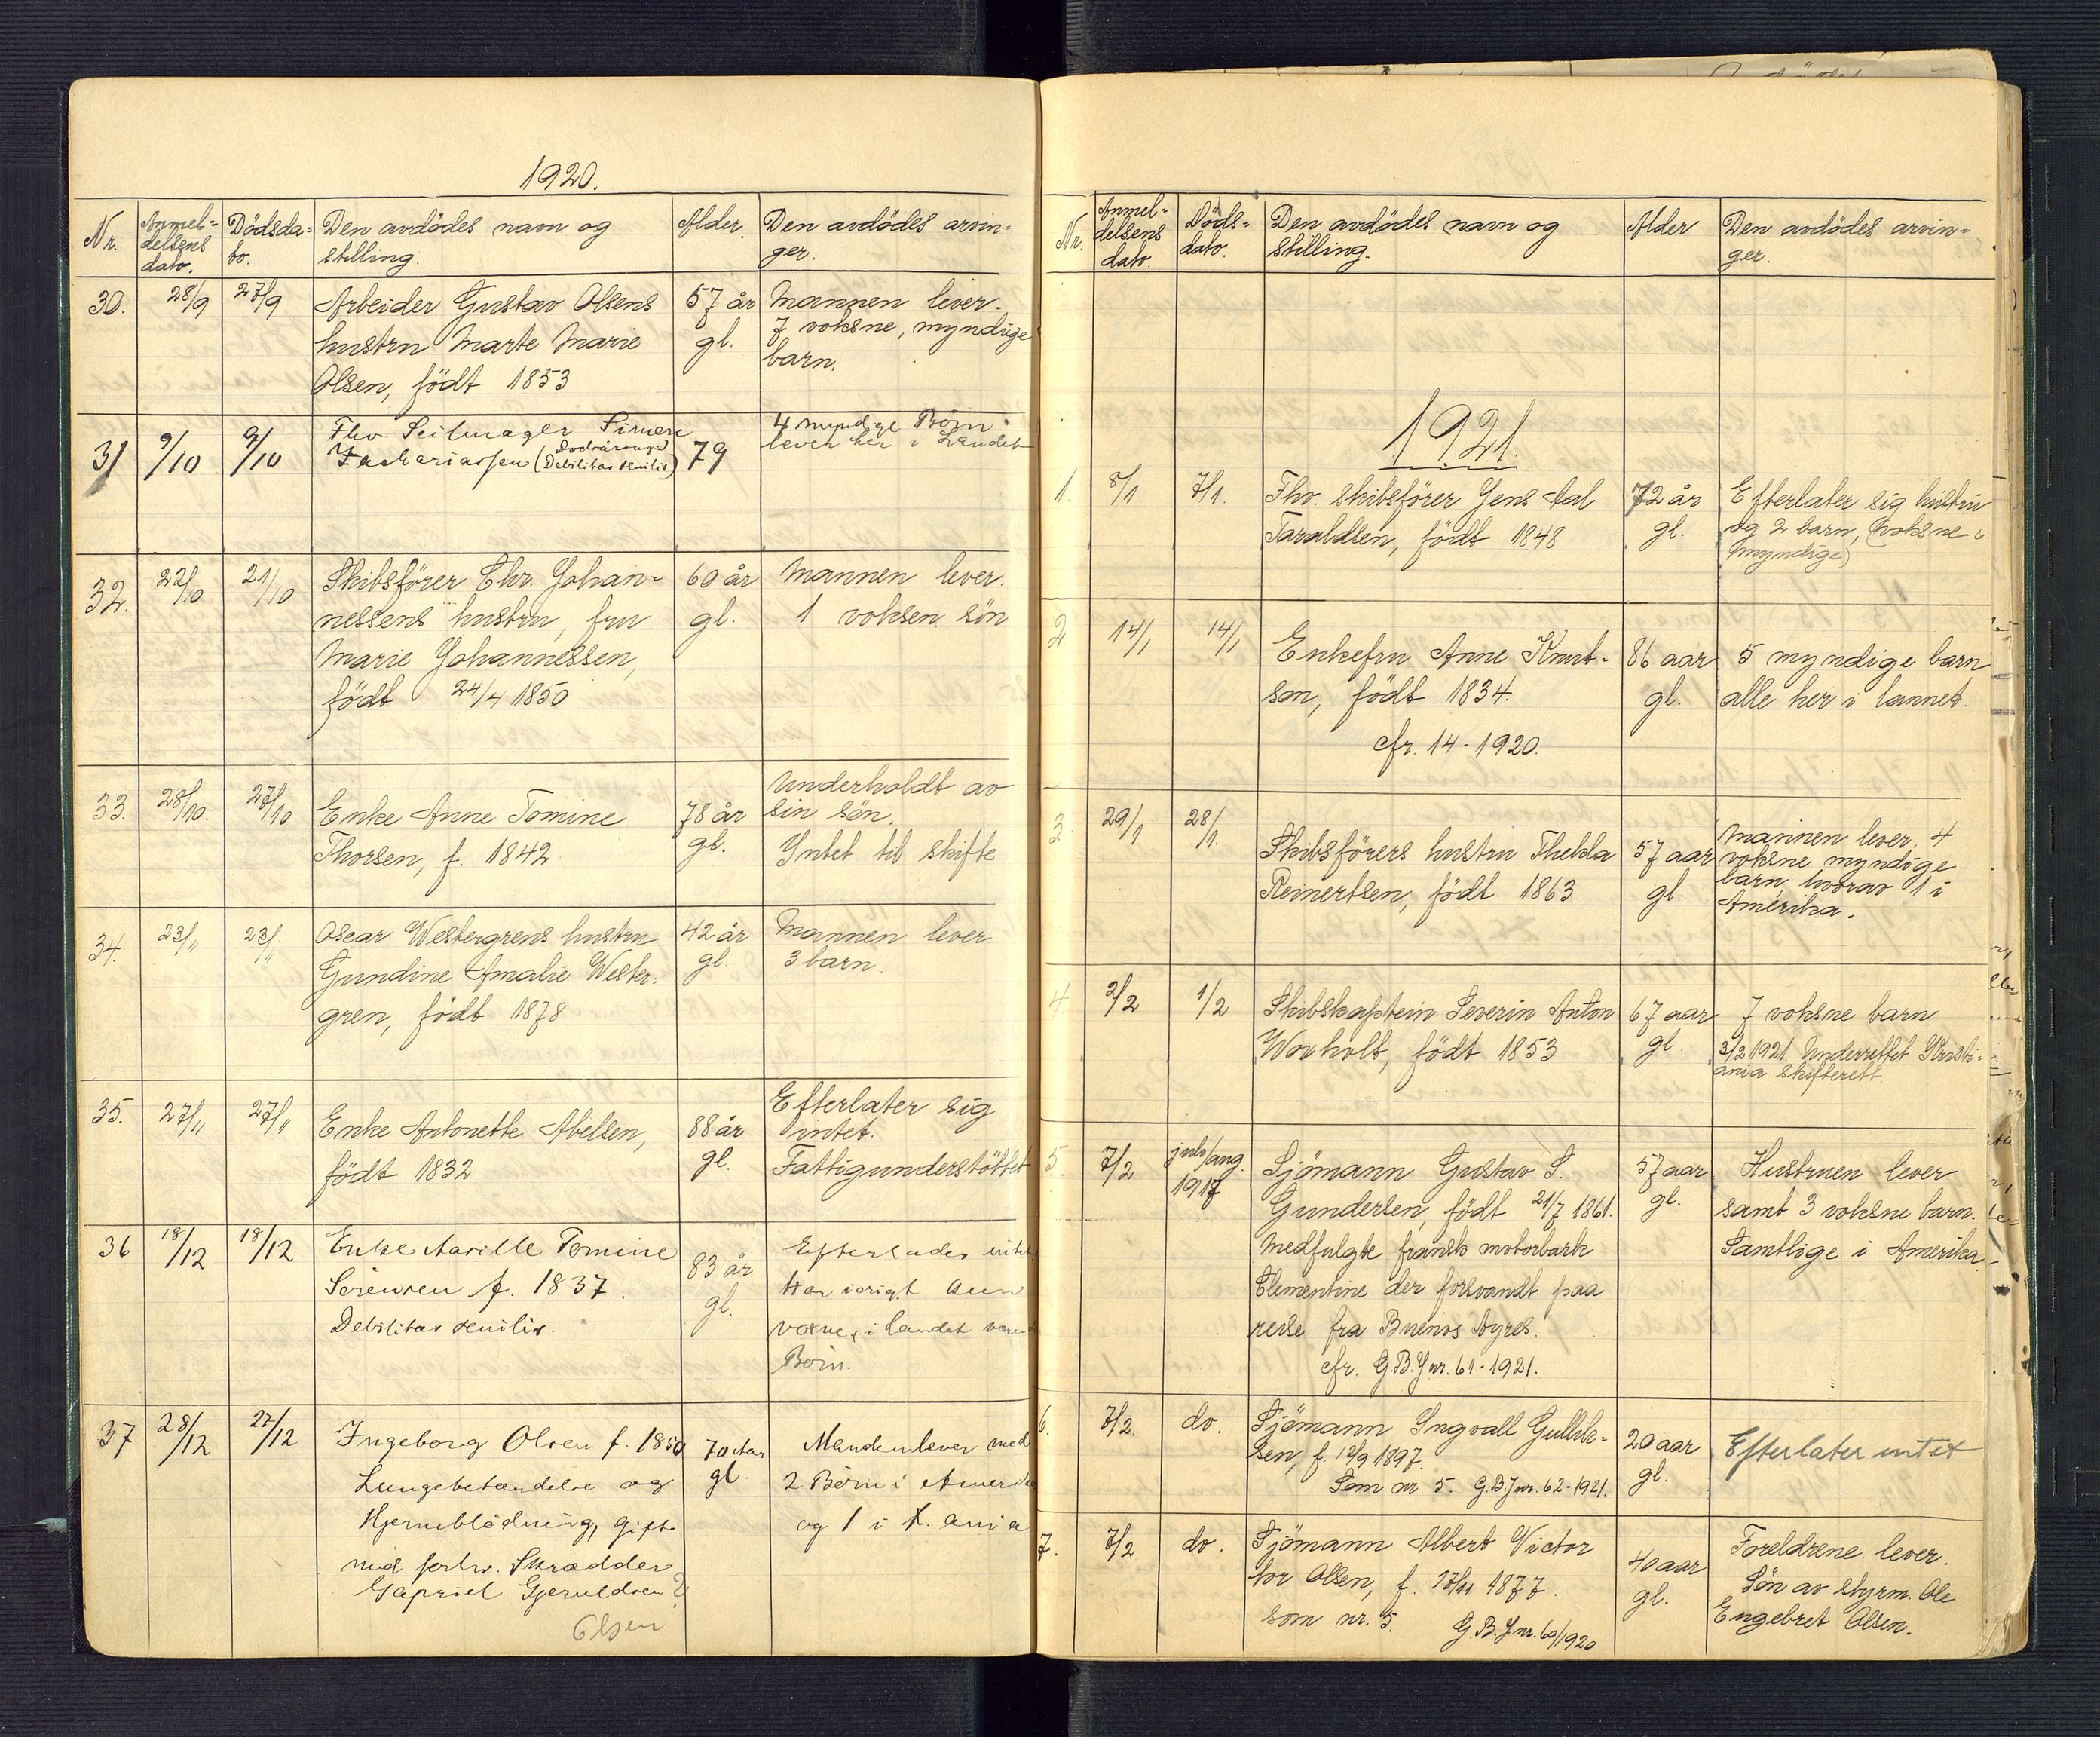 1920.
Nr.
Anmel-
delsens
dato.
Dödsda-
to.
Den avdödes navn og
stilling.
Alder.
Den avdödes arvin-
ger.
30.
28/9
27/9
Arbeider Gustav Olsens
hustru Marte Marie
Olsen, födt 1853
57 år
gl.
Mannen lever.
7 voksne, myndige
barn.
31
9/10
9/10
Fhv. Seilmager Simen
Zachariassen (Debilitas senilis)
79
4 myndige Börn
lever her i Landet
32.
22/10
21/10
Skibsförer Chr. Johan-
nessens hustru, fru
Marie Johannessen,
födt 24/4 1850
60 år
gl.
Mannen lever.
1 voksen sön
33.
28/10.
27/10
Enke Anne Tomine
Thorsen, f. 1842
78 år
gl.
Underholdt av
sin sön.
Intet til skifte
34.
23/11
23/11
Oscar Westergrens hustru
Gundine Amalie Wester-
gren, födt 1878
42 år
gl.
Mannen lever
3 barn.
35.
27/11
27/11
Enke Antonette Abelsen,
födt 1832
88 år
gl.
Efterlater sig
intet.
Fattigunderstöttet
36
18/12
18/12
Enke Aasille Tomine
Sörensen f. 1837.
Debilitas senilis.
83 år
gl.
Efterlader intet
Har iörigt kun
voxne, i Landet
Börn.
37
28/12
27/12
Ingeborg Olsen f. 1850
Lungebetændelse og
Hjerneblödning, gift
med forhv. Skrædder
Gapriel Gjeruldsen
Olsen
70 Aar
gl.
Manden lever med
2 Börn i Amerika
og 1 i K.ania
Nr.
Anmel-
delsens
dato.
Döds-
dato.
Den avdödes navn og
stilling.
Alder
Den avdödes arvin-
ger.
1921.
1.
8/1
7/1.
Fhv. skibsförer Jens Aal
Taraldsen, födt 1848
72 år
gl.
Efterlater sig hustru
og 2 barn, (voksne
myndige)
2
14/1
14/1
Enkefru Anne Knut-
son, födt 1834.
cfr. 14-1920.
86 aar
gl.
5 myndige barn
alle her i lannet.
3.
29/1
28/1.
Skibsförers hustru Thekla
Reinertsen, födt 1863
57 aar
gl.
Mannen lever. 4
voksne myndige
barn, hvorav 1 i
Amerika.
4
2/2
1/2
Skibskaptein Severin Anton
Worholt, födt 1853
67 aar
gl.
7 voksne barn
3/2 1921. Underrettet Kristi-
ania skifterett
5.
7/2
juli/aug.
1917
Sjömann Gustav S.
Gundersen, födt 21/7 1861.
Medfulgte fransk motorbark
Clementine der forsvandt paa
reise fra Buenos Ayres.
cfr. G.B.J nr. 61-1921.
57 aar
gl.
Hustruen lever
samt 3 voksne barn.
Samtlige i Amerika.
6.
7/2.
do.
Sjömann Ingvall Gullik-
sen, f. 12/9 1897.
Som nr. 5. G.B.J nr. 62-1921.
20 aar
gl.
Efterlater intet
7.
7/2
do.
Sjömann Albert Victor
Olsen, f. 17/11 1877.
som nr. 5. G.B.J nr. 60/1920
40 aar
gl.
Foreldrene lever.
Sön av styrm. Ole
Engebret Olsen.